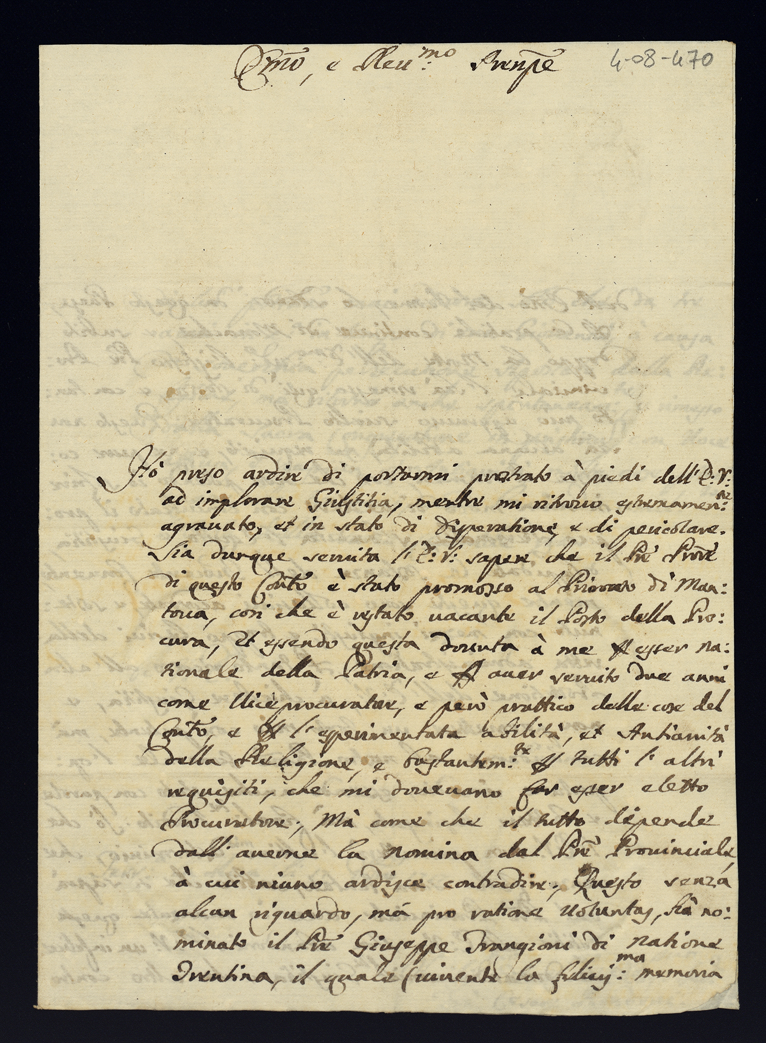 Emo, e Reu:mo Prenpe 4-08-470
Hò preso ardire di portarmi prostrato à piedi dell'E: V:
ad implorare Giustitia, mentre mi ritrovo estremamen:te
agrauato, et in stato di disperatione, e di pericolare.
Sia dunque seruita l'E: V: sapere che il Pre Prore
di questo Conto è stato promosso al Priorato di Man:
toua, così che è restato uacante il Posto della Pro:
cura, Et essendo questa douuta à me per esser na:
tionale della Patria, e per auer seruito due anni
come Uiceprocurator, e però prattico delle cose del
Conto, e per l'esperimentata abilità, et Antianità
della Religione, e bastantem:te per tutti l'altri
requisiti, che mi doueuano far esser eletto
Procuratore; Mà come che il tutto dépende
dall'auerne la nomina dal Pre Prouinciale,
à cui niuno ardisce contradire; Questo senza
alcun riguardo, mà pro ratione uoluntas, hà no:
minato il Pre Giuseppe Frangioni di natione
Trentina, il quale (uiuente la felicis:ma memoria